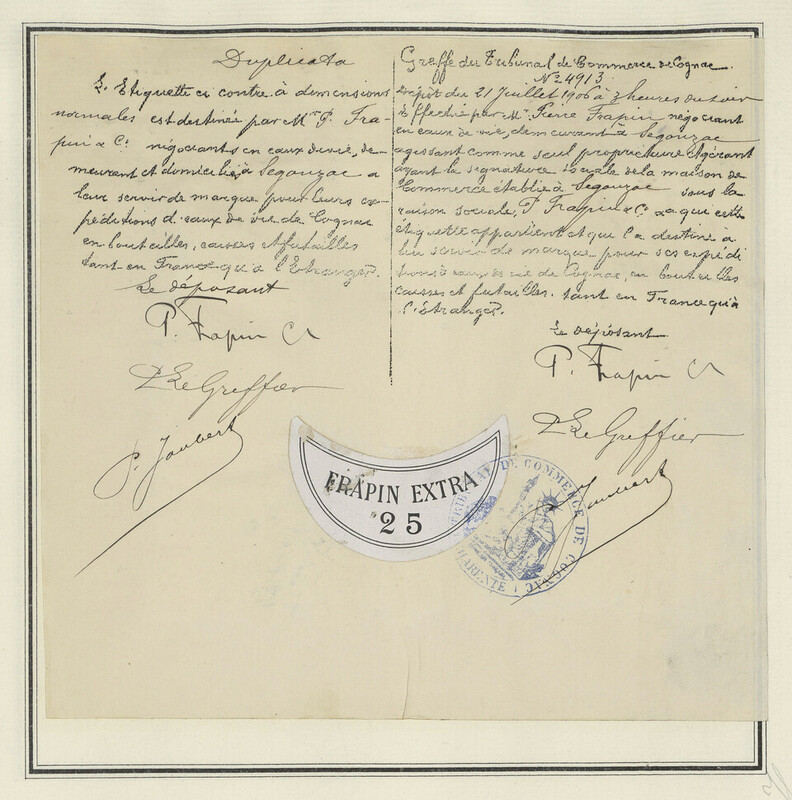 Duplicata
L'Etiquette ci contre, à dimensions
normales est destinée par Mr P. Fra-
pin & Cie négociants en eaux de vie, de-
meurant et domiciliés à Segonzac a
leur servir de marque pour leurs ex-
péditions d'eaux de vie de Cognac
en bouteilles, caisses et futailles
tant en France qu'à l'Etranger.
Le déposant
P. Frapin Cie
Le Greffier
Joubert
Greffe du Tribunal de Commerce de Cognac.
No 4913
Dépôt du 21 Juillet 1906 à heures du soir
Effectué par Mr Pierre Frapin négociant
en eaux de vie, demeurant à Segonzac
agissant comme seul propriétaire et gérant
ayant la signature sociale de la maison de
Commerce établie à Segonzac sous la
raison sociale, P. Frapin & Cie a que cette
etiquette appartient et qu'il a destiné à
lui servir de marque pour ses expédi
tions d'eaux de vie de Cognac, en bouteilles
caisses et futailles. tant en France qu'à
l'étranger.
Le déposant
P. Frapin Cie
Le Greffier
Joubert
FRAPIN EXTRA
25
TRIBUNAL DE COMMERCE DE COGNAC
CHARENTE